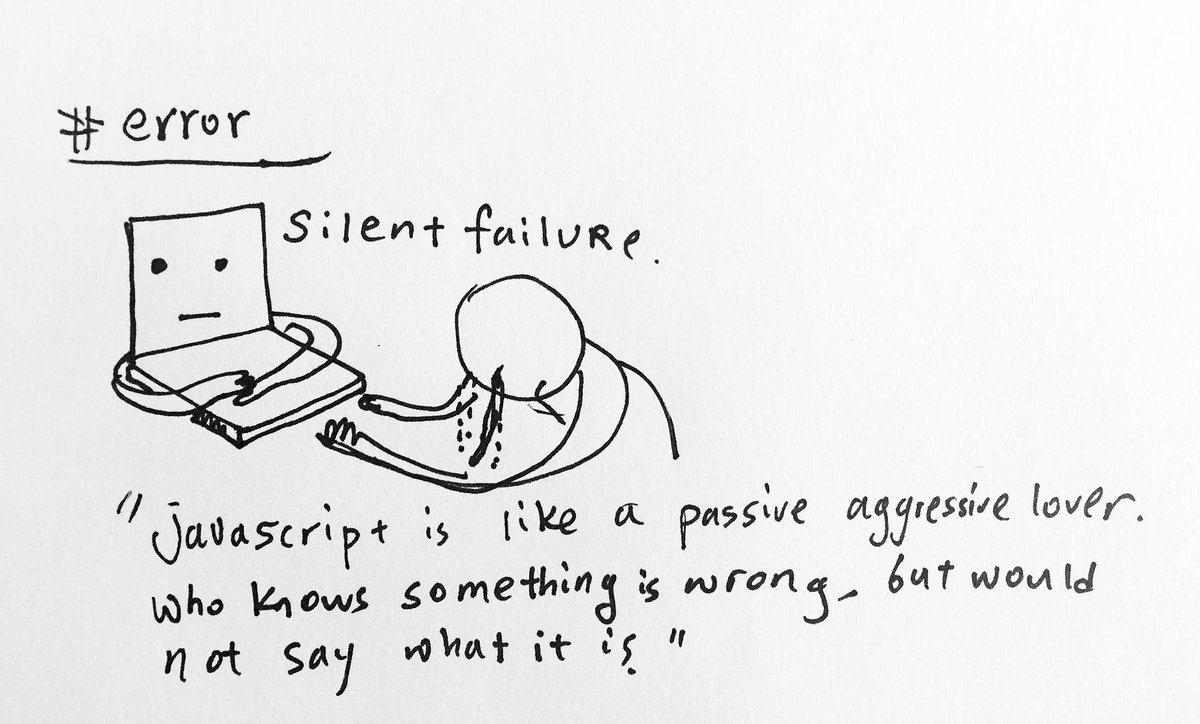 # error
Silent failure.
"javascript is like a passive aggressive lover.
who knows something is wrong, but would
not say what it is"